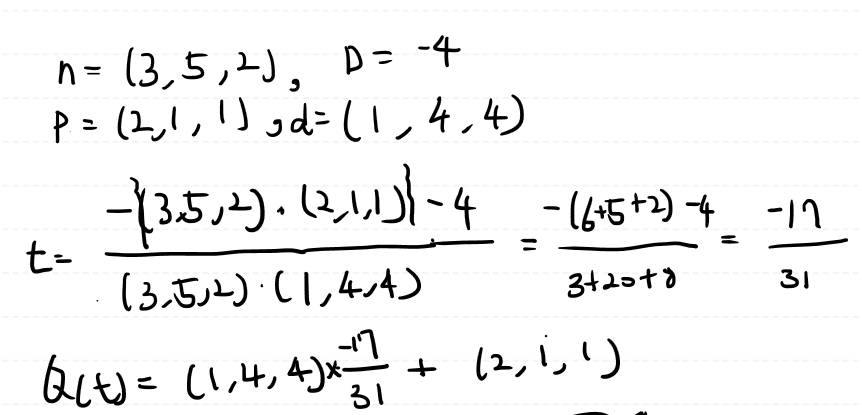 n = (3, 5, 2), D = -4
P = (2, 1, 1), d = (1, 4, 4)
t = \frac{-\{(3,5,2) \cdot (2,1,1)\} - 4}{(3,5,2) \cdot (1,4,4)} = \frac{-(6+5+2) - 4}{3+20+8} = \frac{-17}{31}
Q(t) = (1, 4, 4) × \frac{-17}{31} + (2, 1, 1)